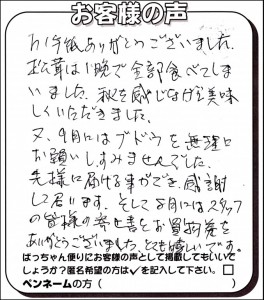 お客様の声
お手紙ありがとうございました。
松茸は1晩で全部食べてしま
いました。秋を感じながら美味
しくいただきました。
又、9月にはブドウを無理に
お願いしすみませんでした。
先様に届ける事ができ、感謝
して居います。そして8月にはスタッフ
の皆様の寄せ書をお買物券を
ありがとうございました。とても嬉しいです。
ばっちゃん便りにお客様の声として掲載してもいいで
しょうか?匿名希望の方は✓を記入して下さい。□
ペンネームの方（　　　　　）